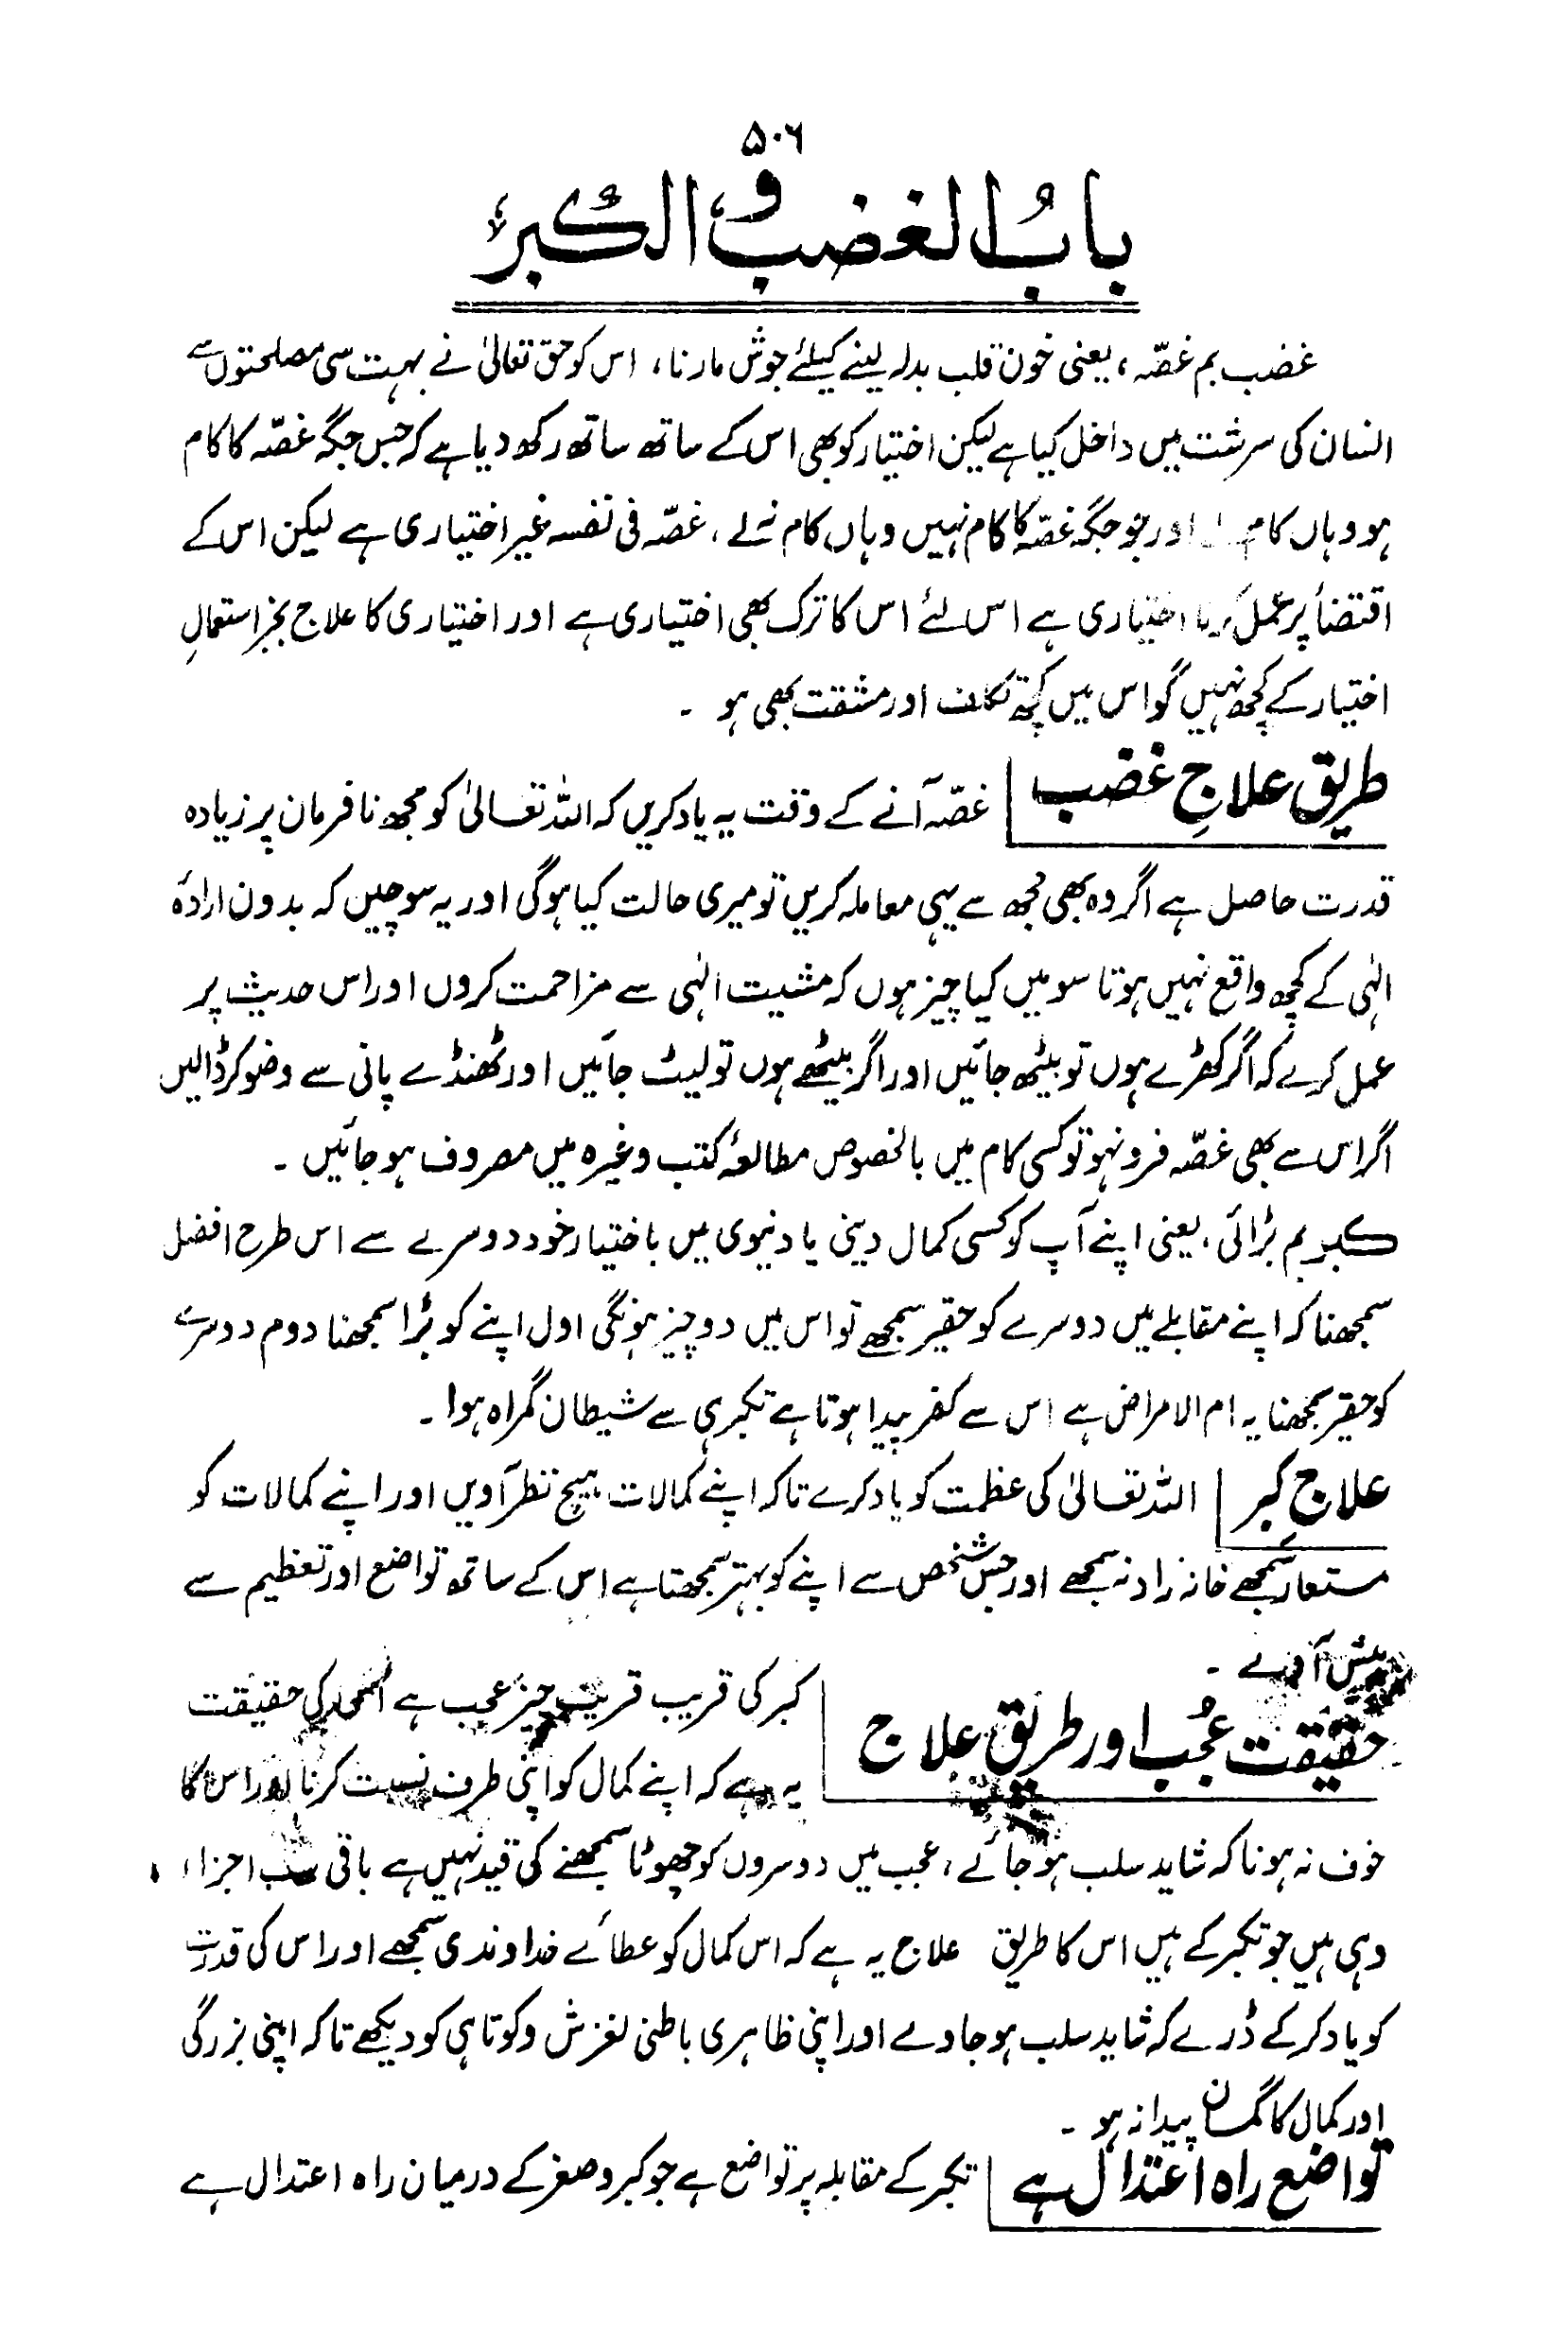 ۵۰۶
بابُ الغضبِ و الکُبرِ
غضب بم غصّہ، یعنی خون قلب بدلہ لینے کیلئے جوش مارنا، اس کو حق تعالیٰ نے بہت سی مصلحتوں سے
انسان کی سرشت میں داخل کیا ہے لیکن اختیار کو بھی اس کے ساتھ ساتھ رکھ دیا ہے کہ جس جگہ غصّہ کا کام
ہو وہاں کام اور جو جگہ غصّہ کا کام نہیں وہاں کام نہ لے، غصّہ فی نفسہ غیر اختیاری ہے لیکن اس کے
اقتضأ پر عمل کرنا اختیاری ہے اس لئے اس کا ترک بھی اختیاری ہے اور اختیاری کا علاج بجز استعمالِ
اختیار کے کچھ نہیں گو اس میں کچھ تکلف اور مشقت بھی ہو ۔
طریق علاجِ غضب غصّہ آنے کے وقت یہ یاد کریں کہ اللہ تعالیٰ کو مجھ نافرمان پر زیادہ
قدرت حاصل ہے اگر وہ بھی مجھ سے یہی معاملہ کریں تو میری حالت کیا ہوگی اور یہ سوچیں کہ بدون ارادۂ
الٰہی کے کچھ واقع نہیں ہوتا سو میں کیا چیز ہوں کہ مشیت الٰہی سے مزاحمت کروں اور اس حدیث پر
عمل کرے کہ اگر کھڑے ہوں تو بیٹھ جائیں اور اگر بیٹھے ہوں تو لیٹ جائیں اور ٹھنڈے پانی سے وضو کر ڈالیں
اگر اس سے بھی غصّہ فرو نہو تو کسی کام میں بالخصوص مطالعۂ کتب وغیرہ میں مصروف ہو جائیں ۔
کبر بم بڑائی، یعنی اپنے آپ کو کسی کمال دینی یا دنیوی میں باختیار خود دوسرے سے اس طرح افضل
سمجھنا کہ اپنے مقابلے میں دوسرے کو حقیر سمجھے تو اس میں دو چیز ہونگی اول اپنے کو بڑا سمجھنا دوم دوسرے
کو حقیر سمجھنا یہ ام الامراض ہے اس سے کفر پیدا ہوتا ہے تکبر ہی سے شیطان گمراہ ہوا ۔
علاج کبر اللہ تعالیٰ کی عظمت کو یاد کرے تاکہ اپنے کمالات ہیچ نظر آویں اور اپنے کمالات کو
مستعار سمجھے خانہ زاد نہ سمجھے اور جس شخص سے اپنے کو بہتر سمجھتا ہے اس کے ساتھ تواضع اور تعظیم سے
پیش آوے ۔
حقیقت عُجب اور طریق علاج کبر کی قریب قریب چیز عجب ہے اسکی حقیقت
یہ ہے کہ اپنے کمال کو اپنی طرف نسبت کرنا اور اس کا
خوف نہ ہونا کہ شاید سلب ہو جائے، عجب میں دوسروں کو چھوٹا سمجھنے کی قید نہیں ہے باقی سب اجزاء
وہی ہیں جو تکبر کے ہیں اس کا طریق علاج یہ ہے کہ اس کمال کو عطائے خداوندی سمجھے اور اس کی قدرت
کو یاد کر کے ڈرے کہ شاید سلب ہو جاوے اور اپنی ظاہری باطنی لغزش و کوتاہی کو دیکھے تاکہ اپنی بزرگی
اور کمال کا گمان پیدا نہ ہو ۔
تواضع راہ اعتدال ہے تکبر کے مقابلہ پر تواضع ہے جو کبر و صغر کے درمیان راہ اعتدال ہے